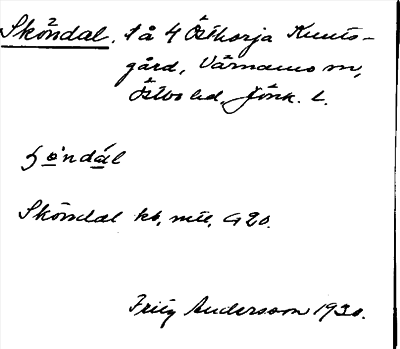 Sköndal, lä 4 Östhorja Knuts-
gård, Värnamo sn,
Östbo hd, Jönk. l.
ʃö̀ndál
Sköndal kb, mtl, G 20.
Fritz Andersson 1930.